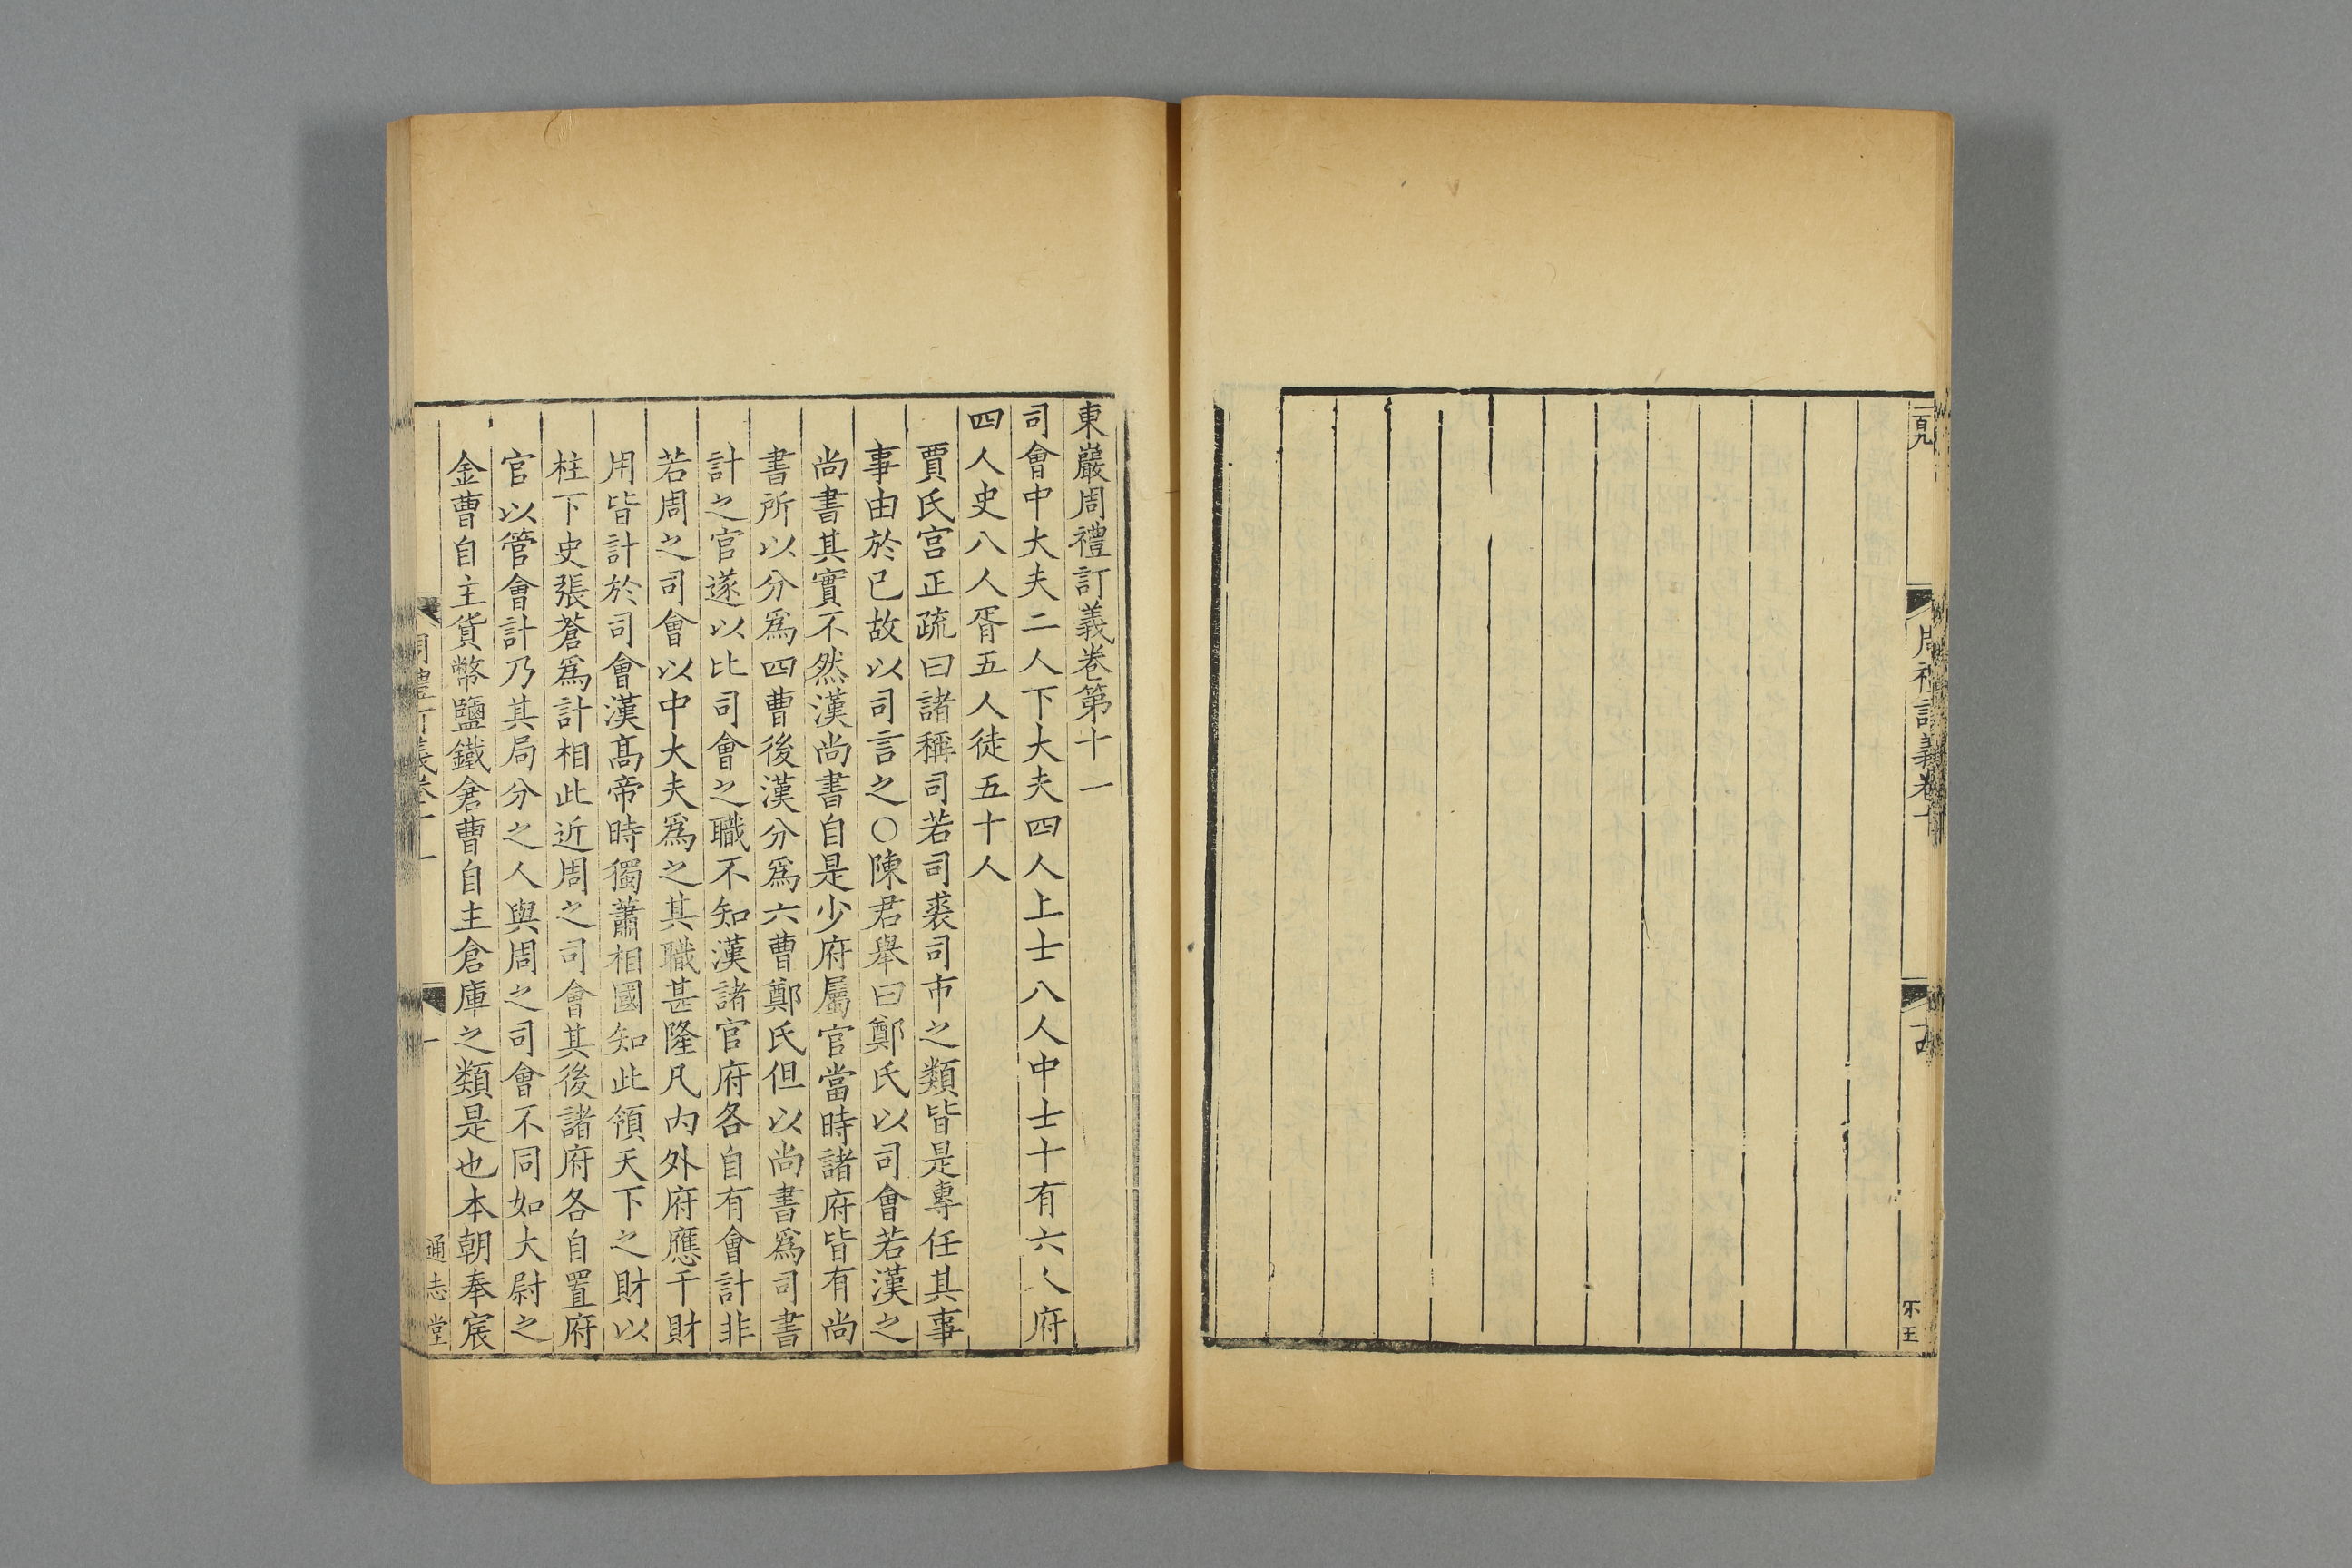 周禮訂義卷十
東巖周禮訂義卷第十一
司會中大夫二人下大夫四人上士八人中士十有六人府
四人史八人胥五人徒五十人
賈氏宫正疏曰諸稱司若司裘司市之類皆是專任其事
事由於已故以司言之○陳君舉曰鄭氏以司會若漢之
尚書其實不然漢尚書自是少府屬官當時諸府皆有尚
書所以分爲四曹後漢分爲六曹鄭氏但以尚書爲司書
計之官遂以比司會之職不知漢諸官府各自有會計非
若周之司會以中大夫爲之其職甚隆凡内外府應干財
用皆計於司會漢髙帝時獨蕭相國知此領天下之財以
柱下史張蒼爲計相此近周之司會其後諸府各自置府
官以管會計乃其局分之人與周之司會不同如大尉之
金曹自主貨幣鹽鐵倉曹自主倉庫之類是也本朝奉宸
周禮訂義卷十一
一
通志堂